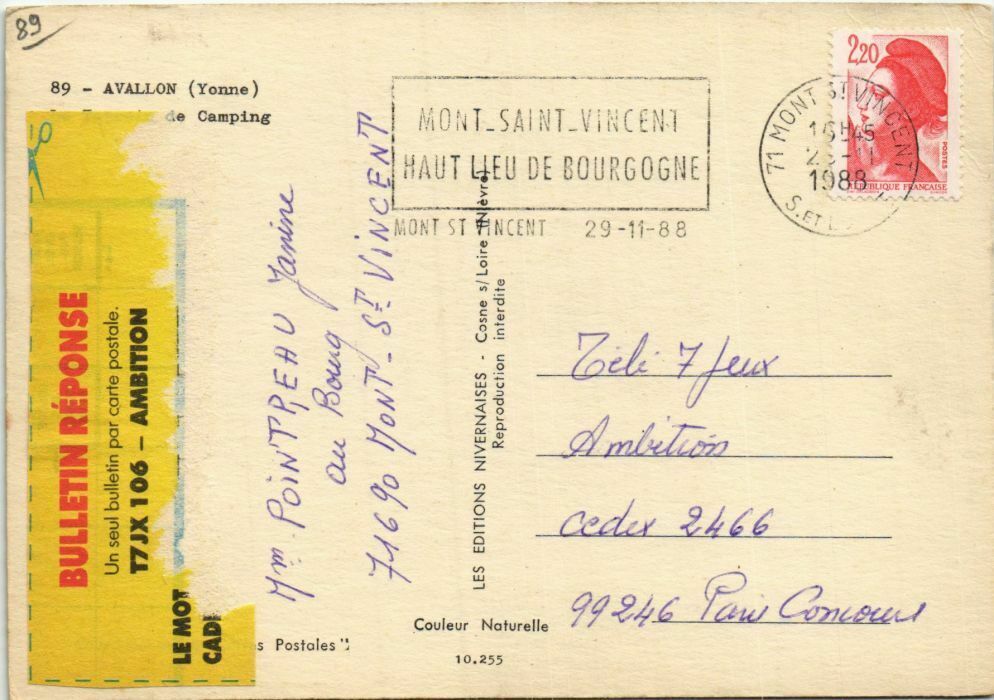 89
89 - AVALLON (Yonne)
de Camping
BULLETIN RÉPONSE
Un seul bulletin par carte postale.
T7JX 106 – AMBITION
LE MOT
CAD
s Postales"
Mme POINTPEAU Janine
au Bourg
71690 MONT - ST VINCENT
MONT-SAINT-VINCENT
HAUT LIEU DE BOURGOGNE
MONT ST VINCENT 29-11-88
LES EDITIONS NIVERNAISES - Cosne s/Loire (Nièvre)
Reproduction interdite
Couleur Naturelle
10.255
71 MONT ST VINCENT
16H45
1988
S. ET L.
2,20
POSTES
REPUBLIQUE FRANÇAISE
Télé 7 Jeux
Ambition
cedex 2466
99246 Paris Concours